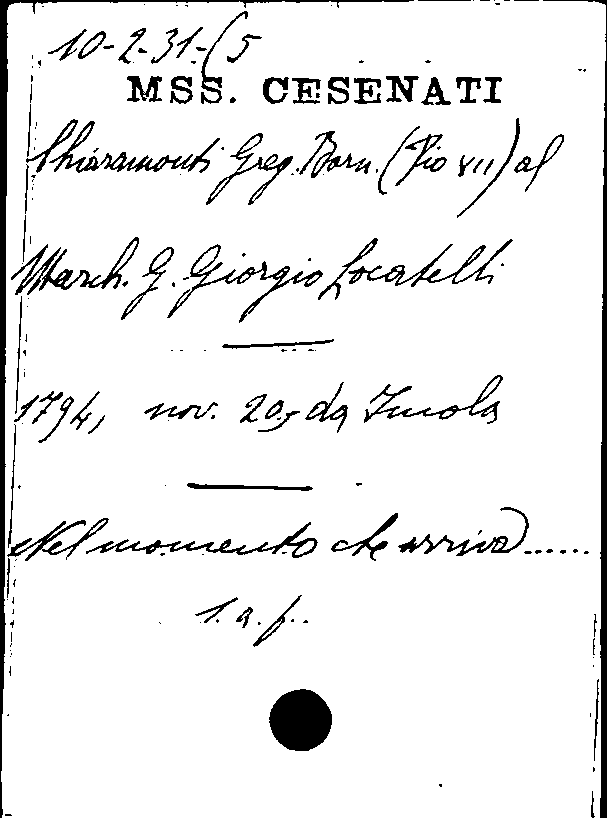 10-2-31-(5
MSS. CESENATI
Chiaramonti Greg. Barn. (Pio VII) al
March. G. Giorgio Locatelli
1794, nov. 20, da Imola
Nel momento che arriva......
l. a. f..